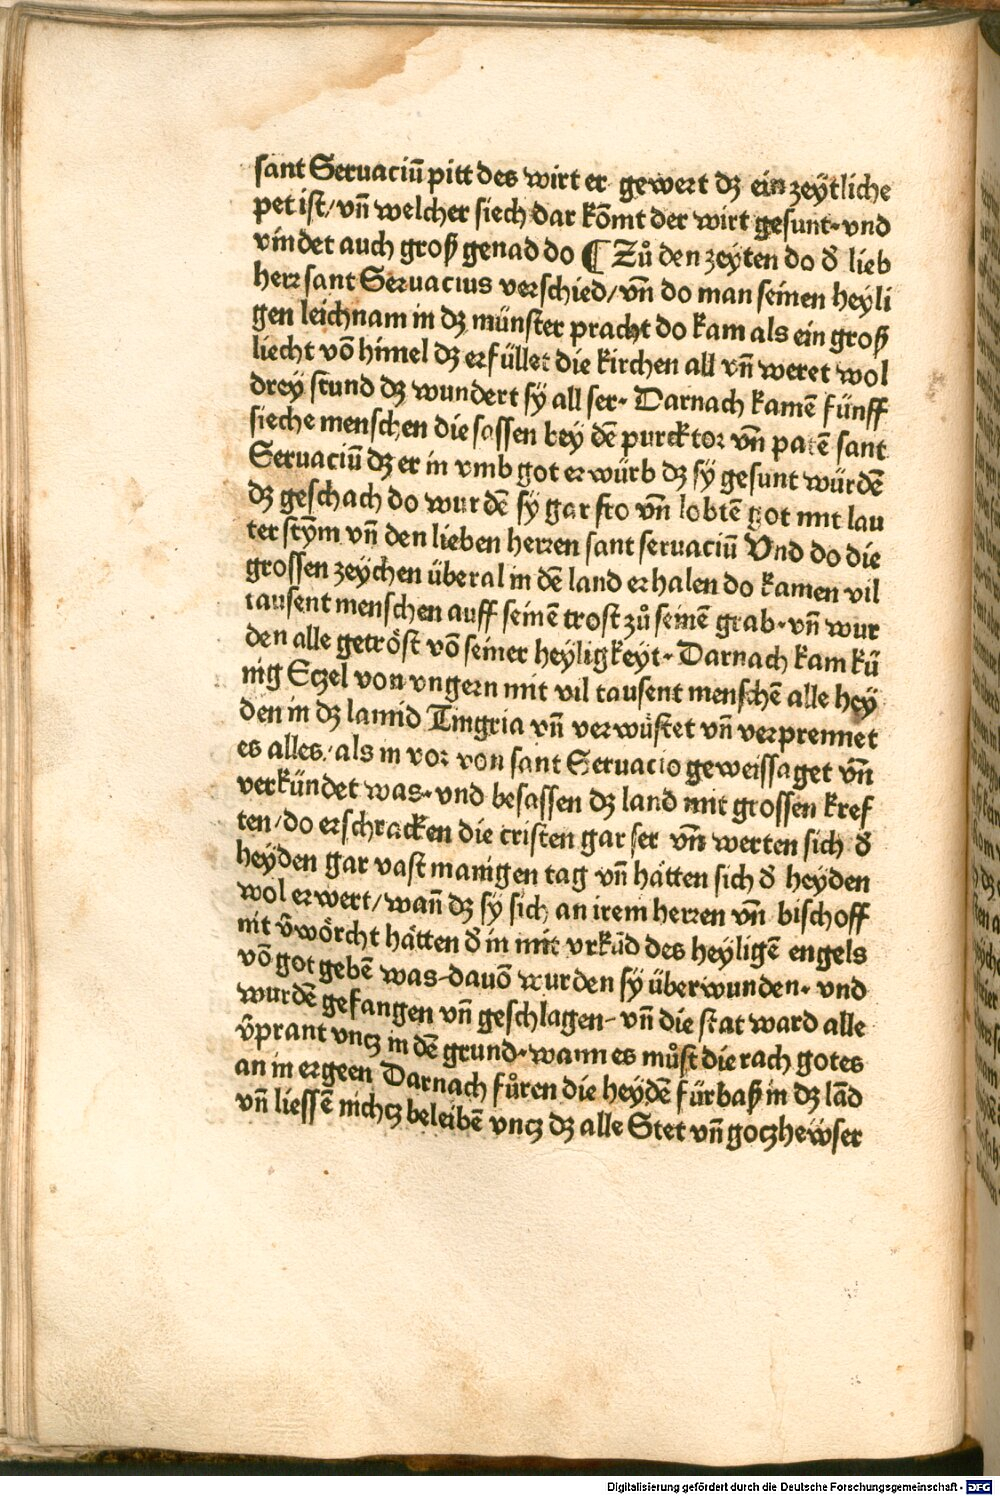 sant Seruaciū pitt des wirt er gewert dz ein zeÿtliche
pet ist/ vn̄ welcher siech dar kōmt der wirt gesunt· vnd
vindet auch groß genad do ¶ Zů den zeyten do d̄ lieb
herr sant Seruacius verschied/ vn̄ do man seinen heyli
gen leichnam in dz münster pracht do kam als ein groß
liecht vō himel dz erfüllet die kirchen all vn̄ weret wol
dreÿ stund dz wundert sÿ all ser· Darnach kamē fünff
sieche menschen die sassen beÿ dē purcktor vn̄ patē sant
Seruaciū dz er in vmb got erwürb dz sÿ gesunt würdē
dz geschach do wurdē sÿ gar fro vn̄ lobtē got mit lau
ter stȳm vn̄ den lieben herren sant seruaciū Vnd do die
grossen zeÿchen überal in dē land erhalen do kamen vil
tausent menschen auff seinē trost zů seinē grab· vn̄ wur
den alle getröst vō seiner heÿligkeyt· Darnach kam kü
nig Eczel von vngern mit vil tausent menschē alle heÿ
den in dz lannd Tingria vn̄ verwüstet vn̄ verprennet
es alles/ als in vor von sant Seruacio geweissaget vn̄
verkündet was· vnd besassen dz land mit grossen kref
ten/ do erschracken die cristen gar ser vn̄ werten sich d̄
heÿden gar vast manigen tag vn̄ hätten sich d̄ heyden
wol erwert/ wan̄ dz sÿ sich an irem herren vn̄ bischoff
nit v̄wörcht hätten d̄ in mit vrkūd des heyligē engels
vō got gebē was· dauō wurden sÿ überwunden· vnd
wurdē gefangen vn̄ geschlagen· vn̄ die stat ward alle
v̄prant vncz in dē grund· wann es můst die rach gotes
an in ergeen Darnach fůren die heydē fürbaß in dz lād
vn̄ liessē nichcz beleibē vncz dz alle Stet vn̄ goczhewser
Digitalisierung gefördert durch die Deutsche Forschungsgemeinschaft - DFG